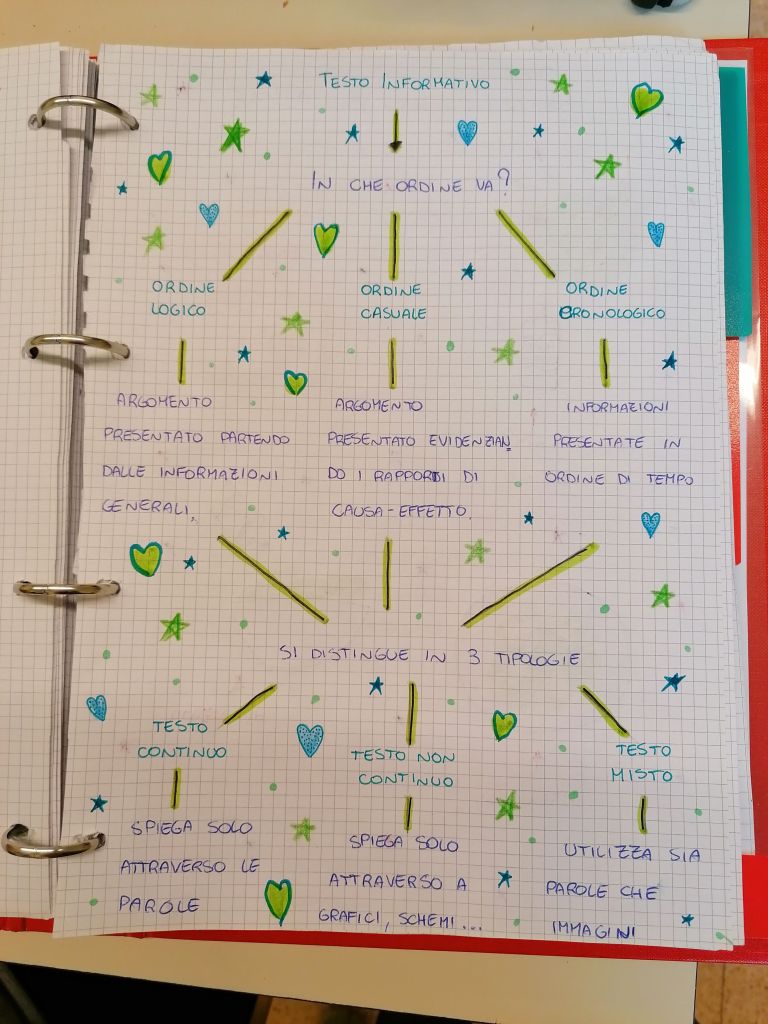 TESTO INFORMATIVO
IN CHE ORDINE VA?
ORDINE
LOGICO
ORDINE
CASUALE
ORDINE
CRONOLOGICO
ARGOMENTO
PRESENTATO PARTENDO
DALLE INFORMAZIONI
GENERALI,
ARGOMENTO
PRESENTATO EVIDENZIAN
DO I RAPPORTI DI
CAUSA-EFFETTO.
INFORMAZIONI
PRESENTATE IN
ORDINE DI TEMPO
SI DISTINGUE IN 3 TIPOLOGIE
TESTO
CONTINUO
TESTO NON
CONTINUO
TESTO
MISTO
SPIEGA SOLO
ATTRAVERSO LE
PAROLE
SPIEGA SOLO
ATTRAVERSO A
GRAFICI, SCHEMI...
UTILIZZA SIA
PAROLE CHE
IMMAGINI